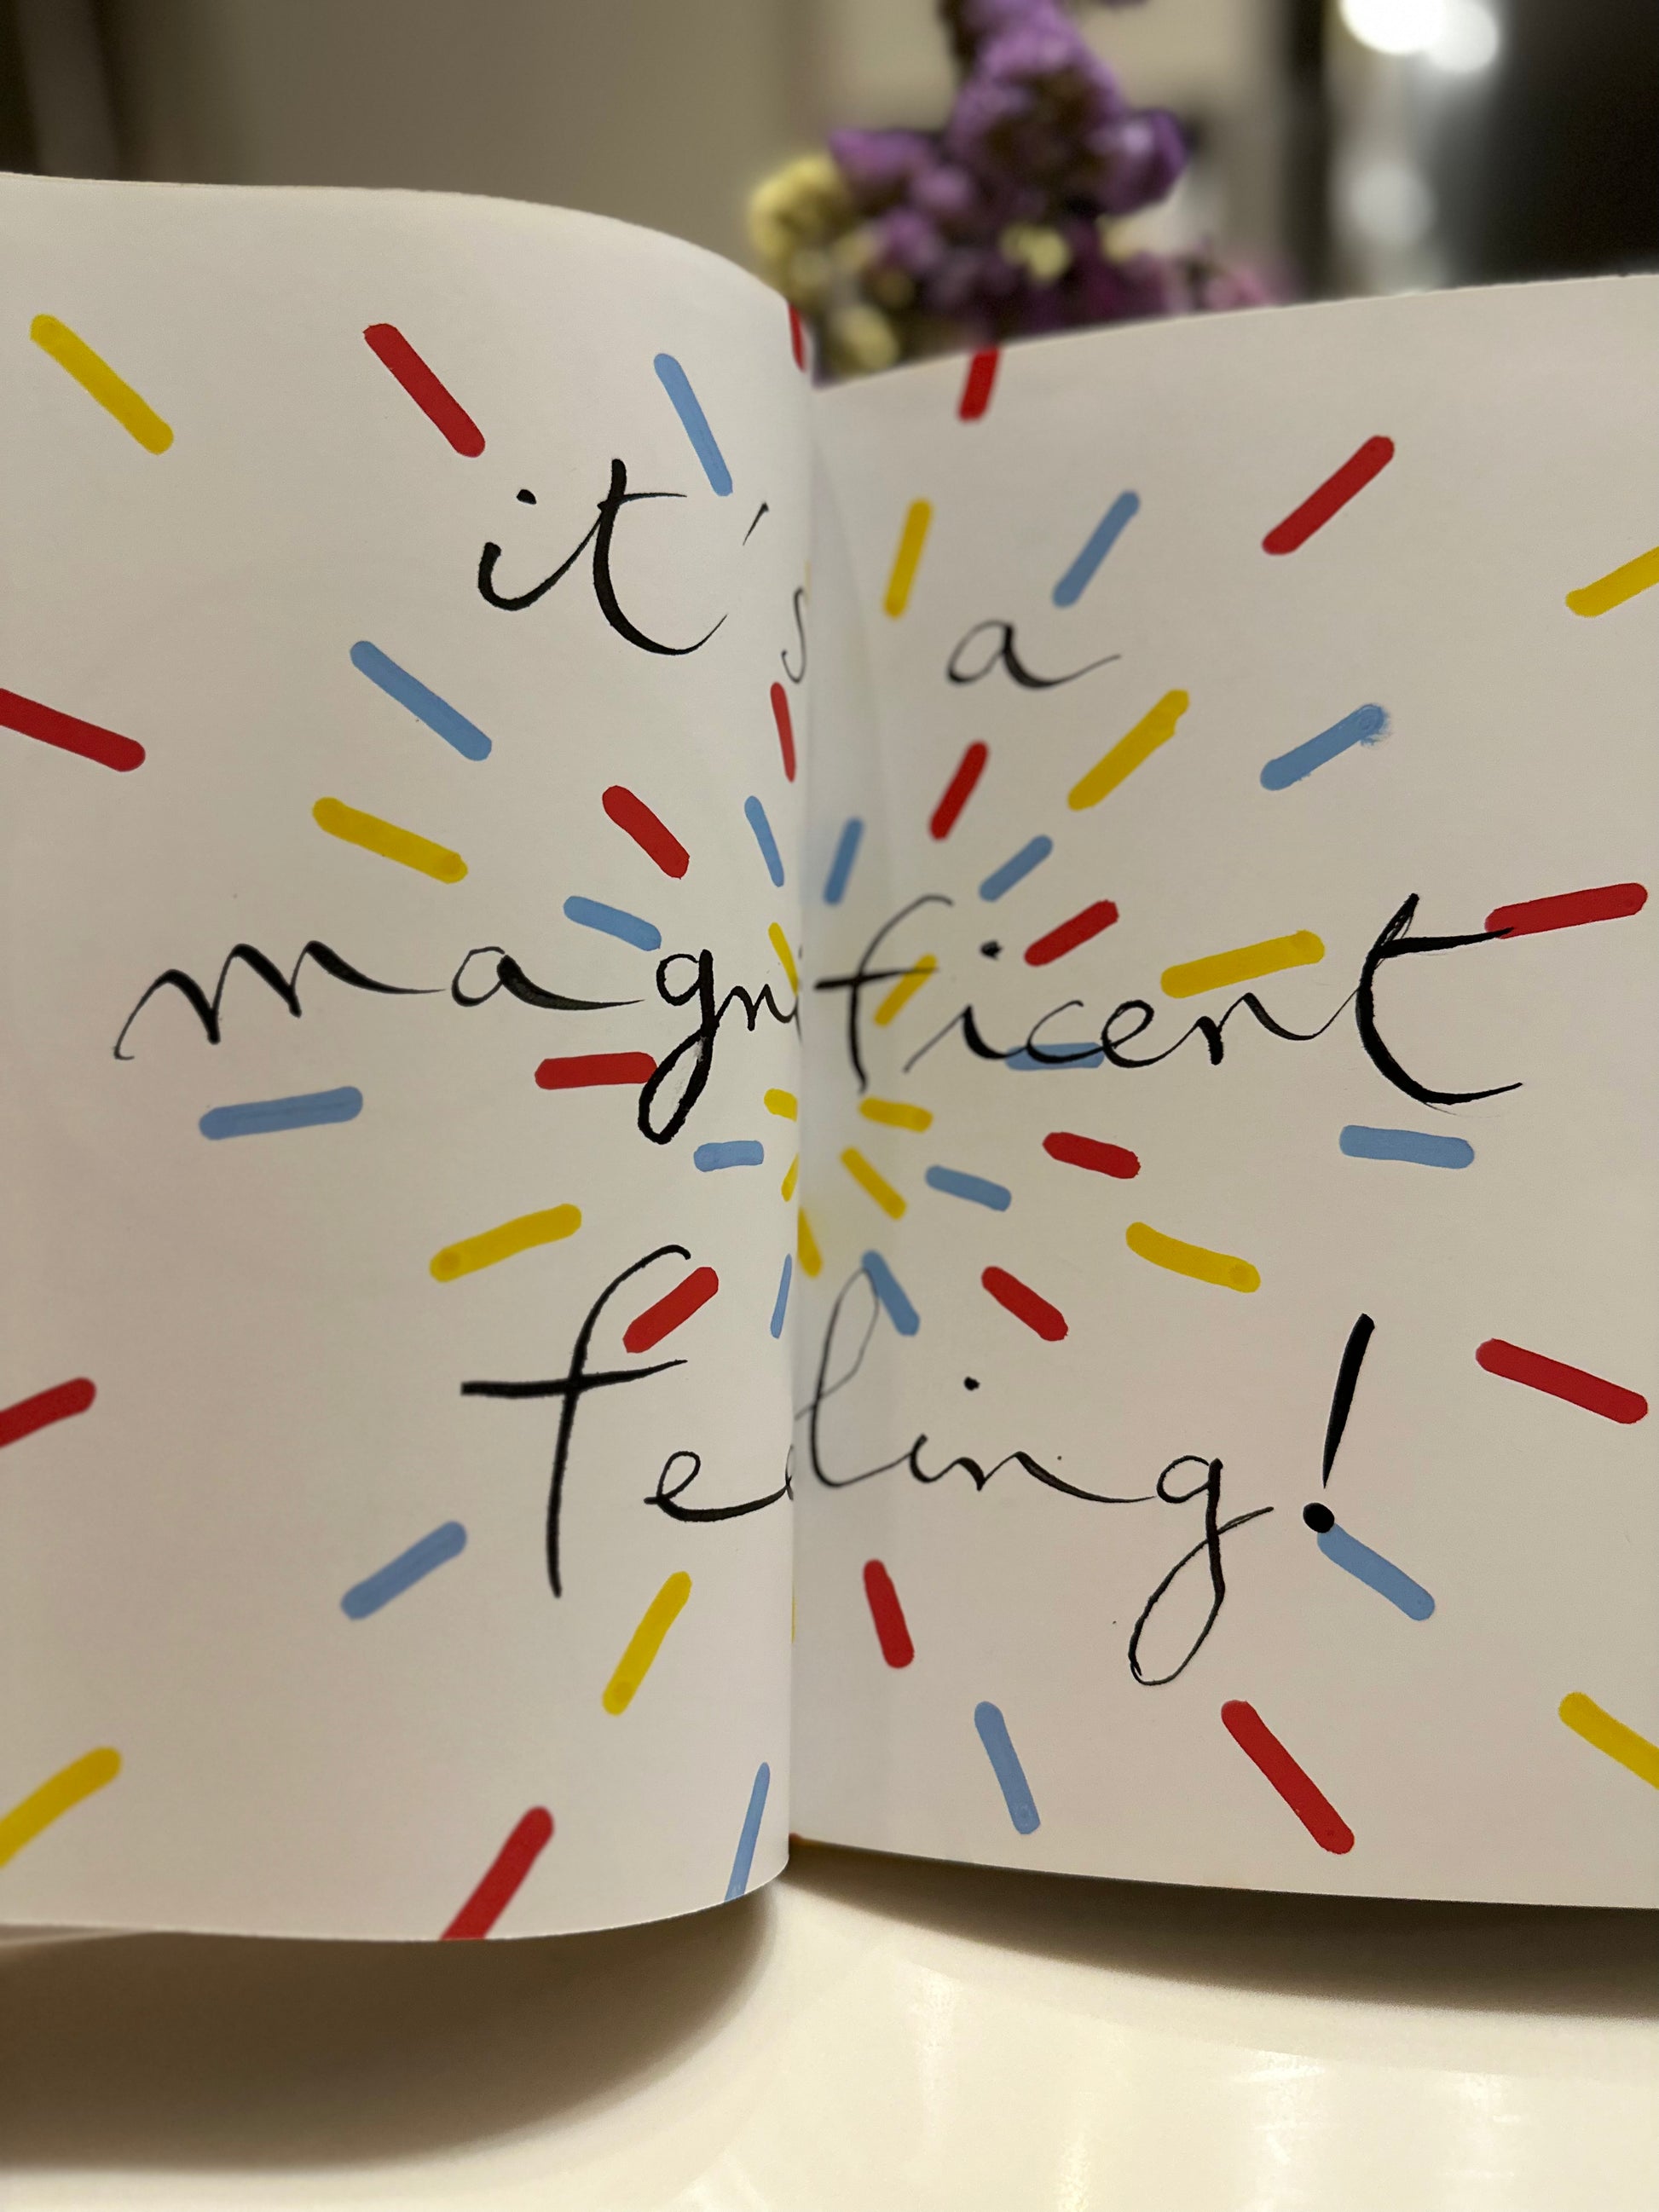 it's a
magnificent
feeling!